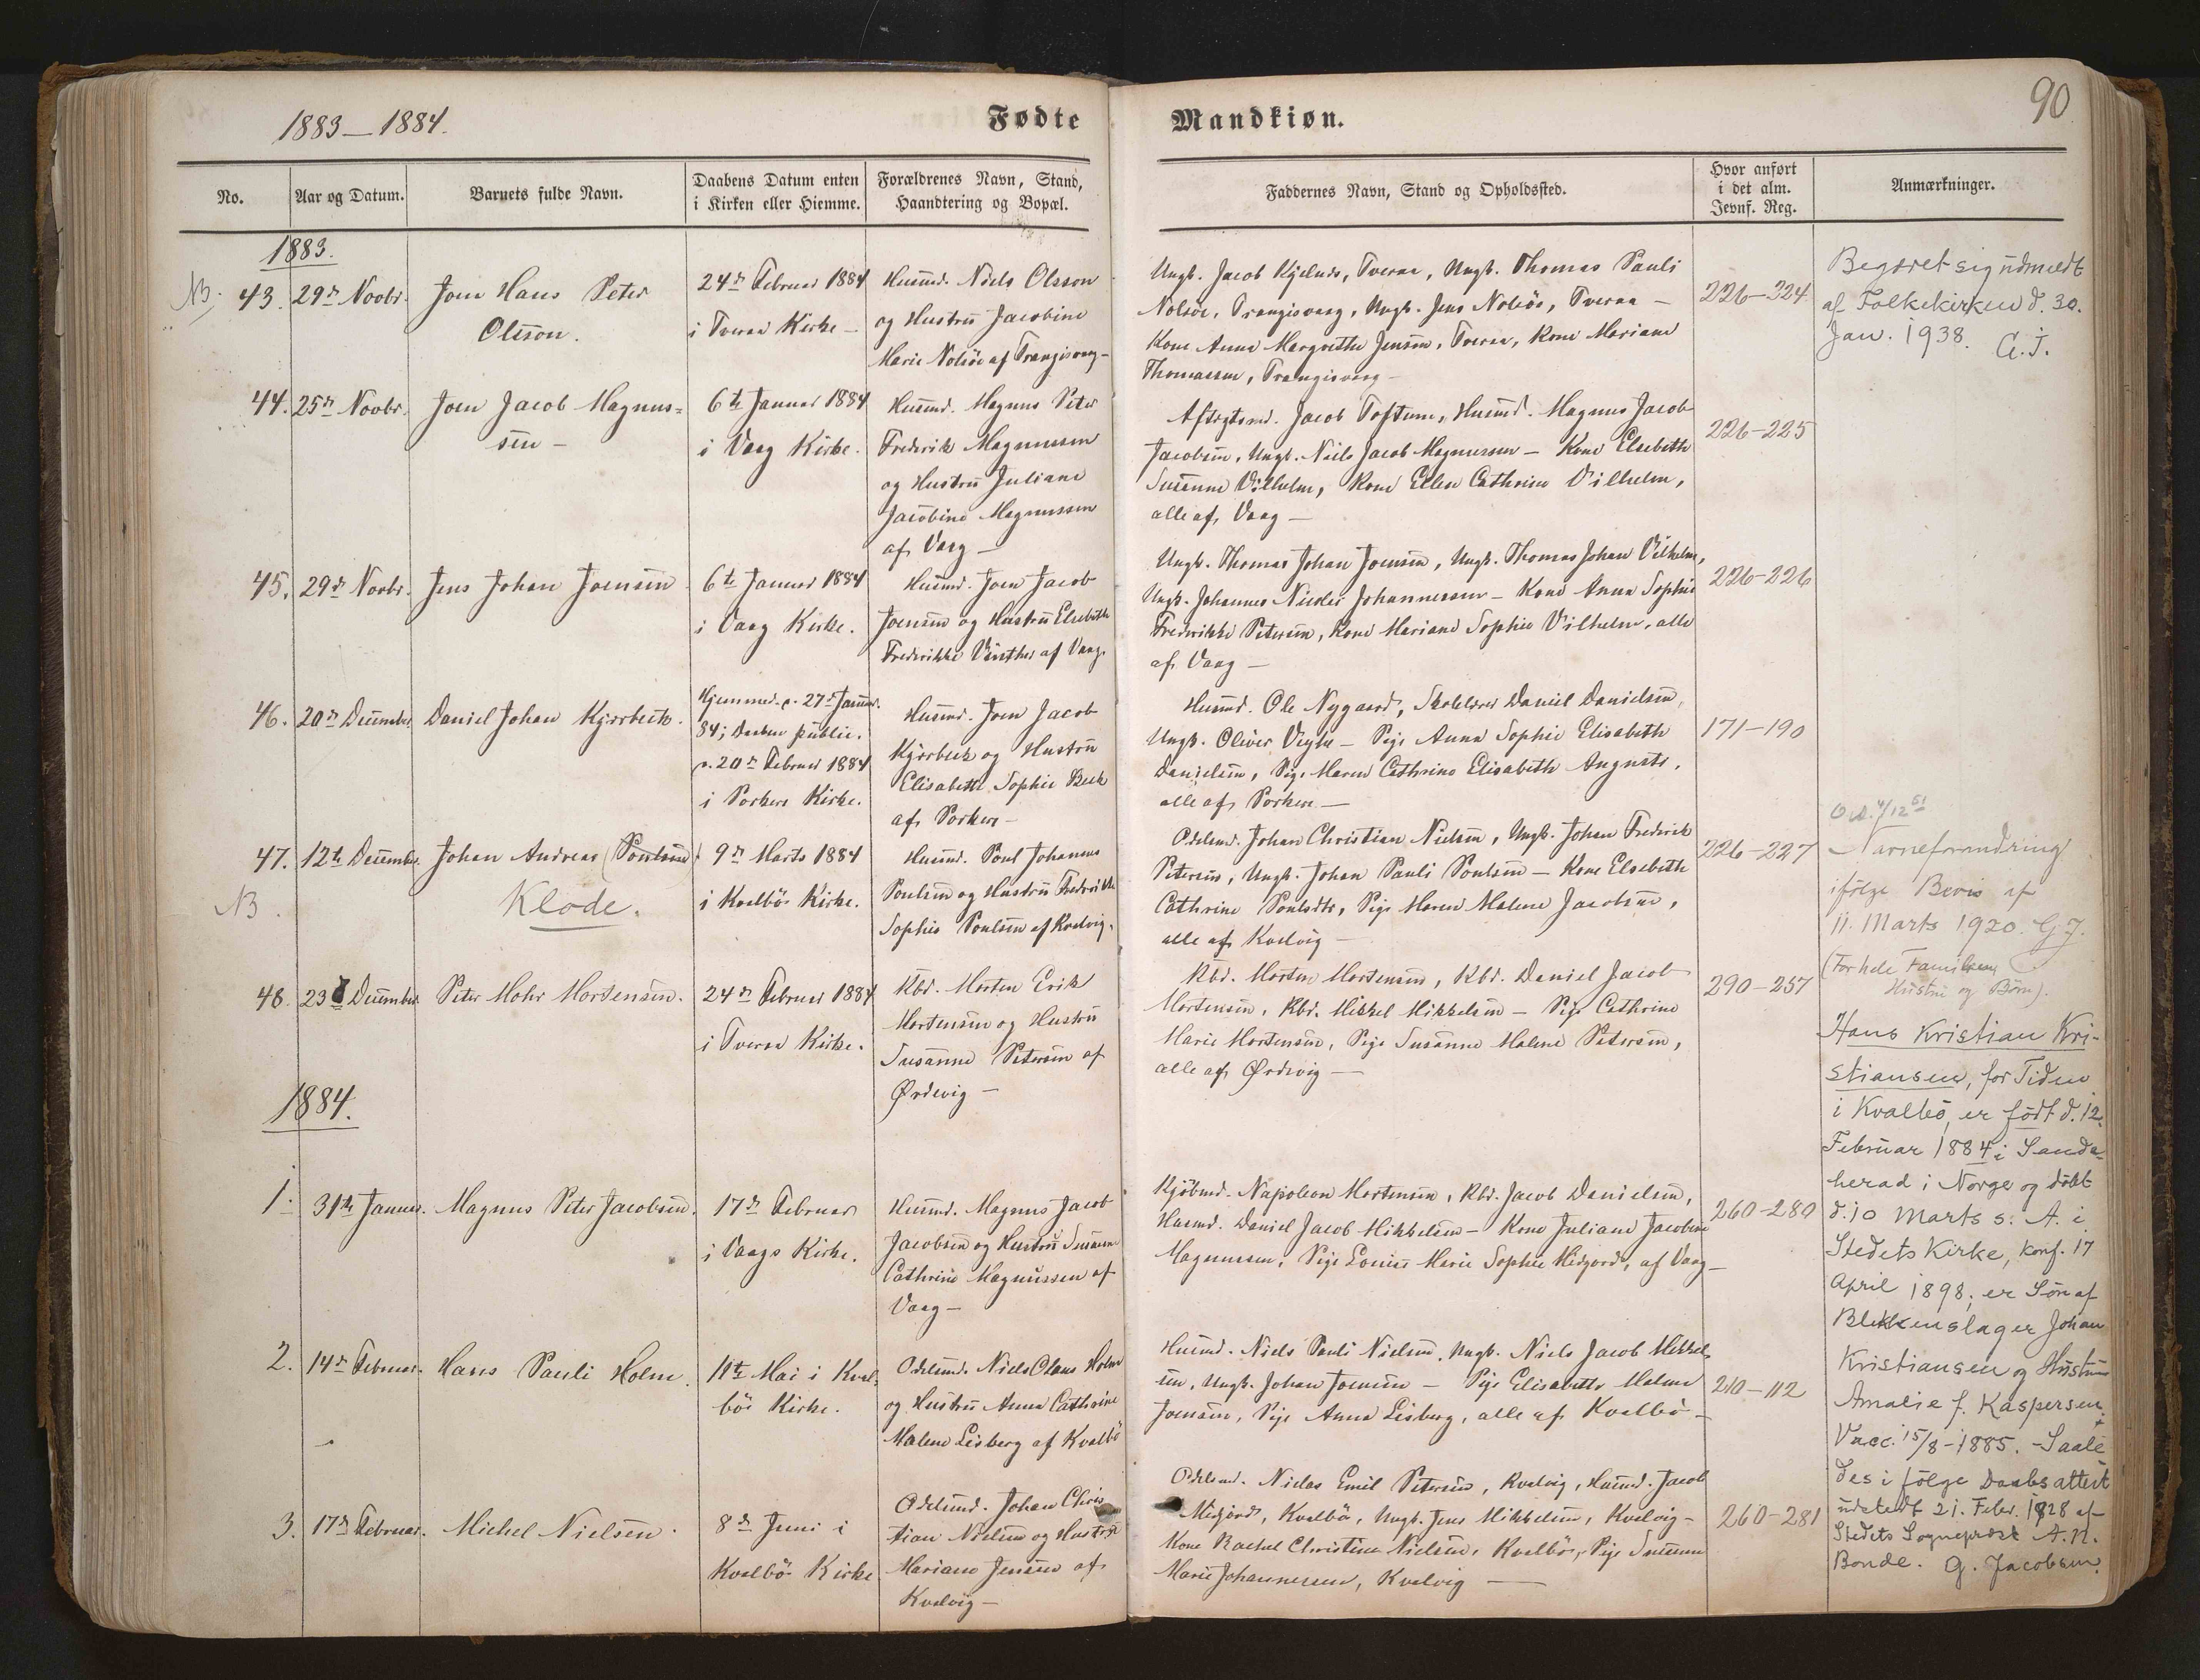 1883–1884.
Fødte
Mandkiøn.
90
No.
Aar og Datum.
Barnets fulde Navn.
Daabens Datum enten
i Kirken eller Hiemme.
Forældrenes Navn, Stand,
Haandtering og Bopæl.
Faddernes Navn, Stand og Opholdssted.
Hvor anført
i det alm.
Jevnf. Reg.
Anmærkninger.
1883.
NB.
43.
29d Novbr.
Joen Hans Peter
Olsson.
24d Februar 1884
i Tveraa Kirke –
Huusmd. Niels Olsson
og Hustru Jacobine
Marie Nolsöe af Trangisvaag –
Ungk. Jacob Kjelnæs, Tveraa, Ungk. Thomas Pauli
Nolsöe, Trangisvaag, Ungk. Jens Nolsöe, Tveraa –
Kone Anna Margrethe Jensen, Tveraa, Kone Mariane
Thomassen, Trangisvaag –
226–324.
Begæret sig udmeldt
af Folkekirken d. 30.
Jan. 1938. G.J.
44.
25d Novbr.
Joen Jacob Magnus=
sen –
6te Januar 1884
i Vaag Kirke.
Huusmd. Magnus Peter
Frederik Magnussen
og Hustru Juliane
Jacobine Magnussen
af Vaag –
Aftægtsmd. Jacob Toftum, Huusmd. Magnus Jacob
Jacobsen, Ungk. Niels Jacob Magnussen – Kone Elsebeth
Susanne Vilhelm, Kone Ellen Cathrine Vilhelm,
alle af Vaag –
226–225
45.
29d Novbr.
Jens Johan Joensen
6te Januar 1884
i Vaag Kirke.
Huusmd. Joen Jacob
Joensen og Hustru Elsebeth
Frederikke Vinther af Vaag.
Ungk. Thomas Johan Joensen, Ungk. Thomas Johan Vilhelm,
Ungk. Johannes Nicolai Johannessen – Kone Anna Sophie
Frederikke Petersen, Kone Mariane Sophie Vilhelm, alle
af Vaag –
226–226
46.
20d December
Daniel Johan Kjærbech.
Hjemmed. d. 27d Januar
84; Daaben public.
d. 20d Februar 1884
i Porkere Kirke.
Huusmd. Joen Jacob
Kjærbech og Hustru
Elisabeth Sophie Bech
af Porkere –
Huusmd. Ole Nygaard, Skolelærer Daniel Danielsen,
Ungk. Oliver Vegtr – Pige Anna Sophie Elisabeth
Danielsen, Pige Maren Cathrine Elisabeth Auguste,
alle af Porkere –
171–190
47.
NB.
12te December
Johan Andreas (Poulsen)
Klode.
9d Marts 1884
i Kvalbö Kirke.
Huusmd. Poul Johannes
Poulsen og Hustru Frederikke
Sophie Poulsen af Kvalvig.
Odelsmd. Johan Christian Nielsen, Ungk. Johan Frederik
Petersen, Ungk. Johan Pauli Poulsen – Kone Elsebeth
Cathrine Poulsen, Pige Maren Malene Jacobsen,
alle af Kvalvig –
226–227
4/12 61
Navneforandring
ifölge Bevis af
11. Marts 1920. G.J.
(For hele Familien
Hustru og Börn).
48.
23d December
Peter Mohr Mortensen.
24d Februar 1884
i Tveraa Kirke.
Kbd. Morten Erik
Mortensen og Hustru
Susanne Petersen af
Ørdevig –
Kbd. Morten Mortensen, Kbd. Daniel Jacob
Mortensen, Kbd. Mikkel Mikkelsen – Pige Cathrine
Marie Mortensen, Pige Susanne Malene Petersen,
alle af Ørdevig –
290–257
1884.
Hans Kristian Kri-
stiansen, for Tiden
i Kvalbö, er född d. 12.
Februar 1884 i Sande-
herad i Norge og döbt
d. 10 Marts s. A. i
Stedets Kirke, konf. 17
April 1898; er Sön af
Blikkenslager Johan
Kristiansen og Hustru
Amalie f. Kaspersen.
Vacc. 15/8-1885. – Saale
des i fölge Daabsattest
udstedt 21. Febr. 1928 af
Stedets Sognepræst A.N.
Bonde. G. Jacobsen.
1.
31te Januar.
Magnus Peter Jacobsen.
17d Februar
i Vaags Kirke.
Huusmd. Magnus Jacob
Jacobsen og Hustru Susanne
Cathrine Magnussen af
Vaag –
Kjöbmd. Napoleon Mortensen, Kbd. Jacob Danielsen,
Huusmd. Daniel Jacob Mikkelsen – Kone Juliane Jacobine
Magnussen, Pige Louise Marie Sophie Midjord, af Vaag –
260–280
2.
14d Februar.
Hans Pauli Holm.
11te Mai i Kval=
bö Kirke.
Odelsmd. Niels Claus Holm
og Hustru Anna Cathrine
Malene Lisberg af Kvalbö
Huusmd. Niels Pauli Nielsen, Ungk. Niels Jacob Mikkel=
sen, Ungk. Johan Joensen – Pige Elisabeth Malene
Joensen, Pige Anna Lisberg, alle af Kvalbö –
210–112
3.
17d Februar.
Michel Nielsen.
8d Juni i
Kvalbö Kirke
Odelsmd. Johan Chris
tian Nielsen og Hustru
Mariane Jensen af
Kvalvig –
Odelsmd. Niclas Emil Petersen, Kvalvig, Huusmd. Jacob
Midjord, Kvalbö, Ungk. Jens Mikkelsen, Kvalvig –
Kone Rachel Christine Nielsen, Kvalbö, Pige Susanne
Marie Johannessen, Kvalvig –
260–281